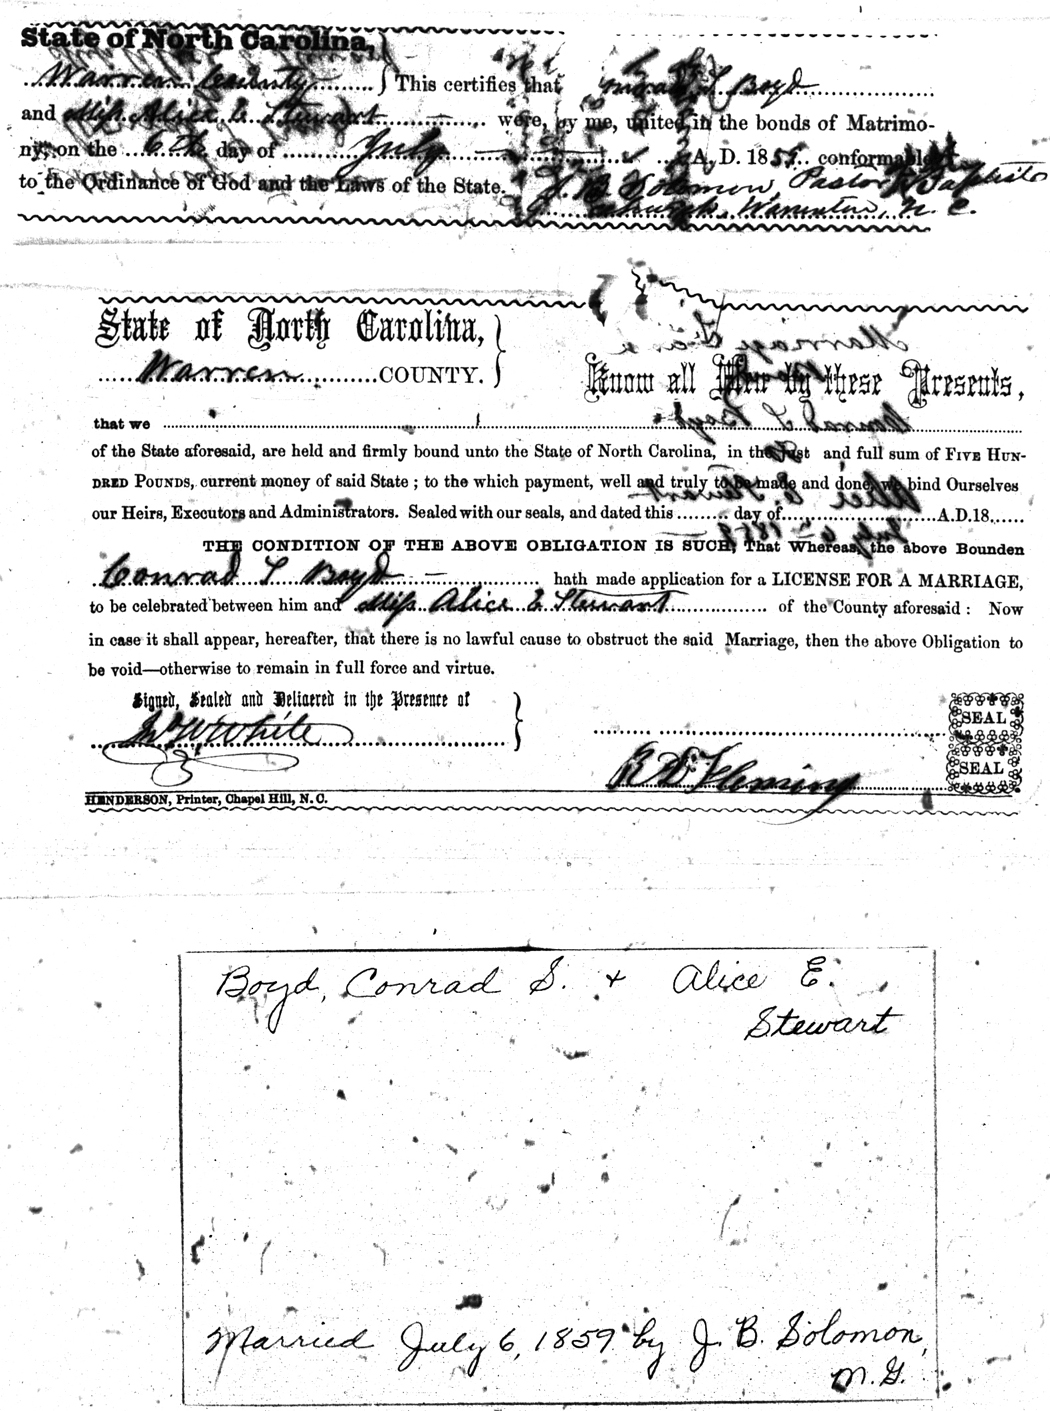 State of North Carolina,
Warren County This certifies that Conrad S Boyd
and Miss Alice E Stewart were, by me, united in the bonds of Matrimo-
ny, on the 6th day of July A. D. 1859 conformable
to the Ordinance of God and the Laws of the State. J. B. Solomon, Pastor Baptist
Church, Warrenton, N. C.
State of North Carolina,
Warren COUNTY.
Know all Men by these Presents,
that we
of the State aforesaid, are held and firmly bound unto the State of North Carolina, in the just and full sum of FIVE HUN-
DRED POUNDS, current money of said State ; to the which payment, well and truly to be made and done, we bind Ourselves
our Heirs, Executors and Administrators. Sealed with our seals, and dated this day of A.D.18
THE CONDITION OF THE ABOVE OBLIGATION IS SUCH, That Whereas, the above Bounden
Conrad S Boyd hath made application for a LICENSE FOR A MARRIAGE,
to be celebrated between him and Miss Alice E Stewart of the County aforesaid : Now
in case it shall appear, hereafter, that there is no lawful cause to obstruct the said Marriage, then the above Obligation to
be void—otherwise to remain in full force and virtue.
Signed, Sealed and Delivered in the Presence of
Wm W White
SEAL
R D Fleming SEAL
HENDERSON, Printer, Chapel Hill, N. C.
Boyd, Conrad S. + Alice E.
Stewart
Married July 6, 1859 by J. B. Solomon,
M. G.